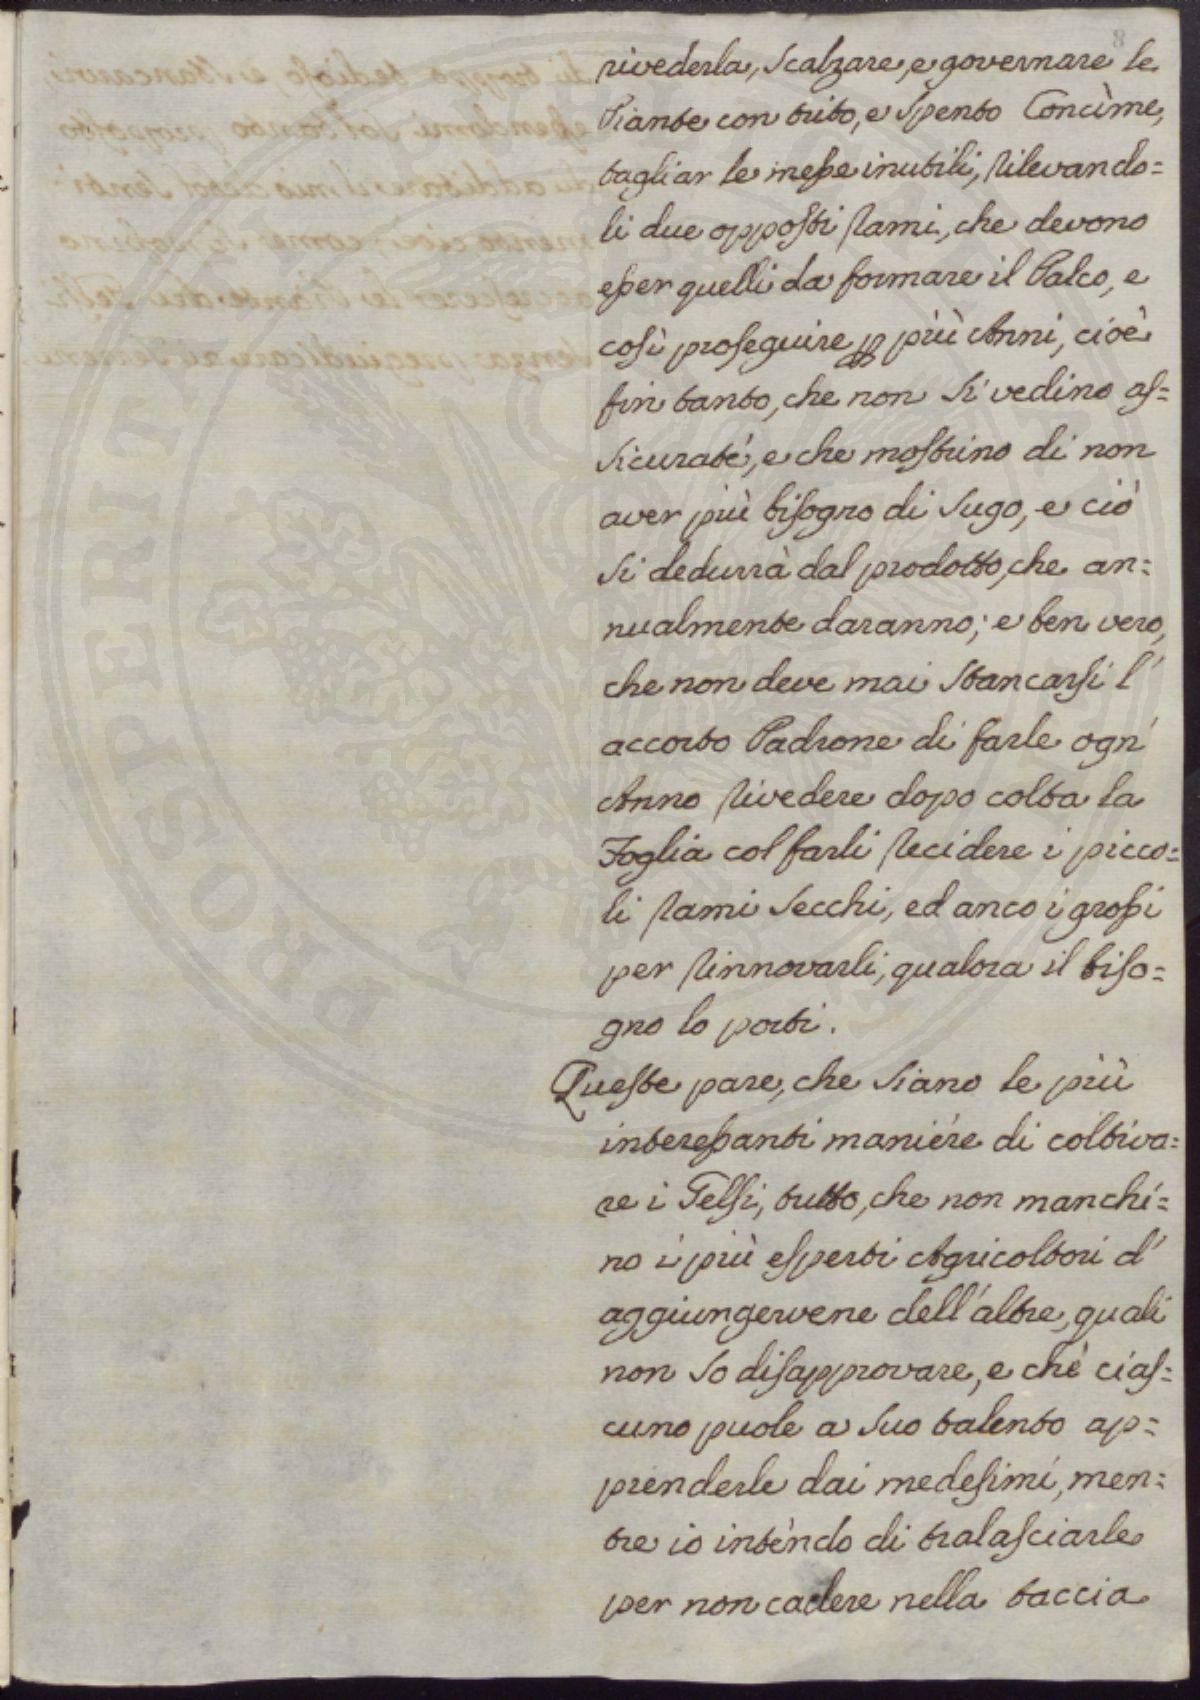 8
rivederla, scalzare, e governare le
Piante con trito, e spento Concime,
tagliar le messe inutili, rilevando=
li due opposti rami, che devono
esser quelli da formare il Palco, e
così proseguire p più Anni, cioè
fin tanto, che non si vedino as=
sicurate, e che mostrino di non
aver più bisogno di sugo, e ciò
si dedurrà dal prodotto, che an=
nualmente daranno; e ben vero,
che non deve mai stancarsi l'
accorto Padrone di farle ogni
Anno rivedere dopo colta la
Foglia col farli recidere i picco=
li rami secchi, ed anco i grossi
per rinnovarli, qualora il biso=
gno lo porti.
Queste pare, che siano le più
interessanti maniere di coltiva=
re i Gelsi, tutto, che non manchi=
no i più esperti Agricoltori d'
aggiungervene dell'altre, quali
non so disapprovare, e che cias=
cuno puole a suo talento ap=
prenderle dai medesimi, men=
tre io intendo di tralasciarle
per non cadere nella taccia
PROSPERITATI